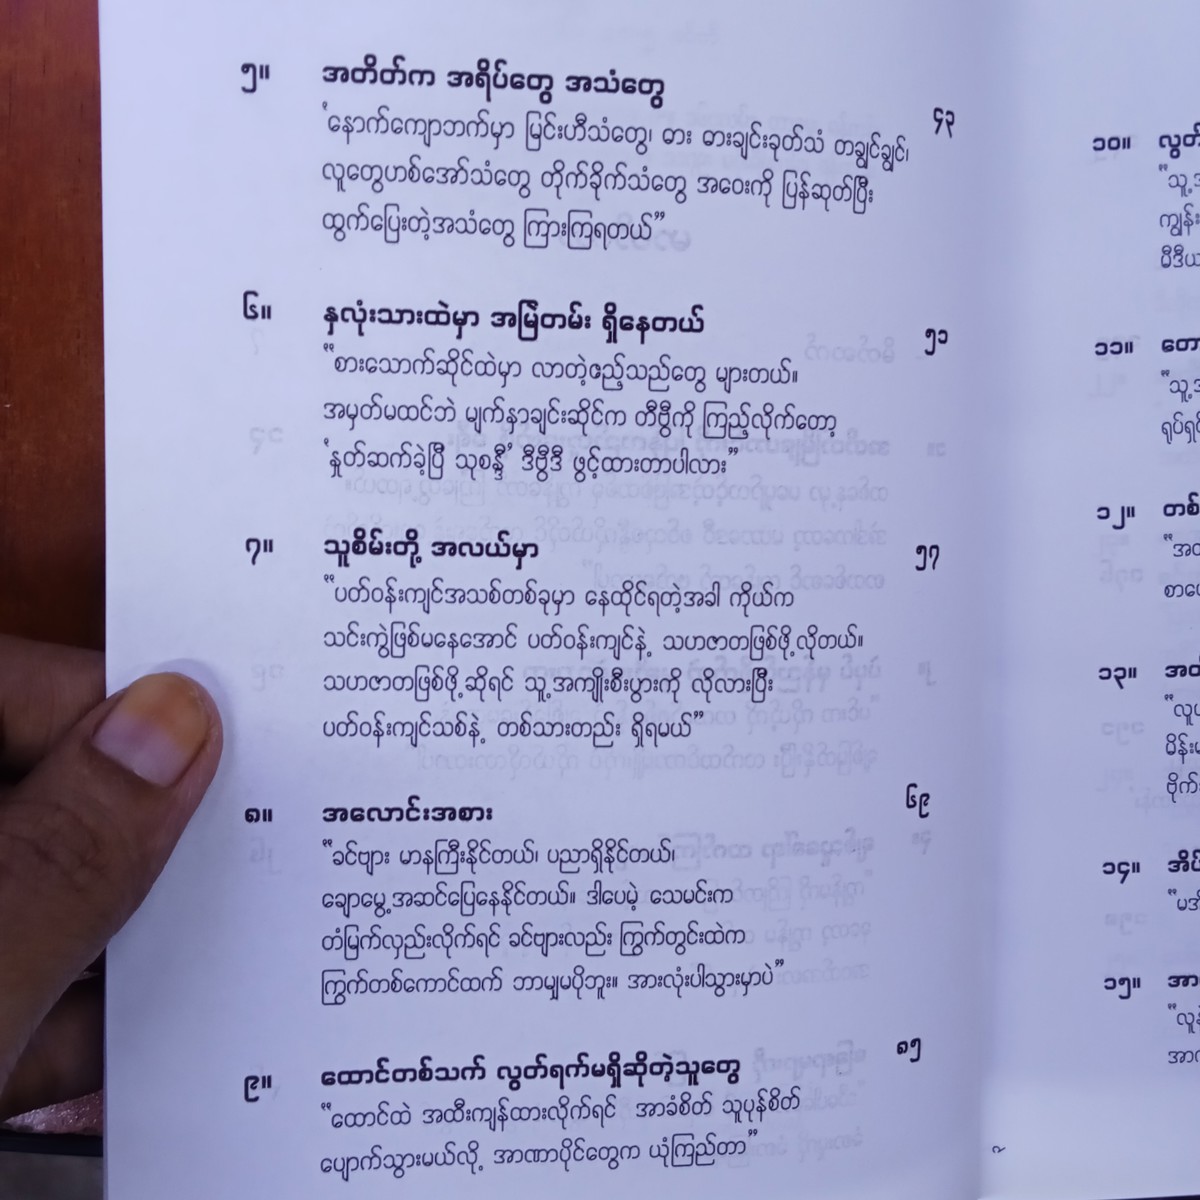 ၅။ အတိတ်က အရိပ်တွေ အသံတွေ ၄၃
‘နောက်ကျောဘက်မှာ မြင်းဟီသံတွေ၊ ဓား ဓားချင်းခုတ်သံ တချွင်ချွင်၊
လူတွေဟစ်အော်သံတွေ တိုက်ခိုက်သံတွေ အဝေးကို ပြန်ဆုတ်ပြီး
ထွက်ပြေးတဲ့အသံတွေ ကြားကြရတယ်”
၆။ နှလုံးသားထဲမှာ အမြဲတမ်း ရှိနေတယ် ၅၁
“စားသောက်ဆိုင်ထဲမှာ လာတဲ့ဧည့်သည်တွေ များတယ်။
အမှတ်မထင်ဘဲ မျက်နှာချင်းဆိုင်က တီဗွီကို ကြည့်လိုက်တော့
‘နှုတ်ဆက်ခဲ့ပြီ သုစန္ဒီ’ ဒီဗွီဒီ ဖွင့်ထားတာပါလား”
၇။ သူစိမ်းတို့ အလယ်မှာ ၅၇
“ပတ်ဝန်းကျင်အသစ်တစ်ခုမှာ နေထိုင်ရတဲ့အခါ ကိုယ်က
သင်းကွဲဖြစ်မနေအောင် ပတ်ဝန်းကျင်နဲ့ သဟဇာတဖြစ်ဖို့လိုတယ်။
သဟဇာတဖြစ်ဖို့ဆိုရင် သူ့အကျိုးစီးပွားကို လိုလားပြီး
ပတ်ဝန်းကျင်သစ်နဲ့ တစ်သားတည်း ရှိရမယ်”
၈။ အလောင်းအစား ၆၉
“ခင်ဗျား မာနကြီးနိုင်တယ်၊ ပညာရှိနိုင်တယ်၊
ချောမွေ့အဆင်ပြေနေနိုင်တယ်။ ဒါပေမဲ့ သေမင်းက
တံမြက်လှည်းလိုက်ရင် ခင်ဗျားလည်း ကြွက်တွင်းထဲက
ကြွက်တစ်ကောင်ထက် ဘာမျှမပိုဘူး။ အားလုံးပါသွားမှာပဲ”
၉။ ထောင်တစ်သက် လွတ်ရက်မရှိဆိုတဲ့သူတွေ ၈၅
“ထောင်ထဲ အထီးကျန်ထားလိုက်ရင် အာခံစိတ် သူပုန်စိတ်
ပျောက်သွားမယ်လို့ အာဏာပိုင်တွေက ယုံကြည်တာ”
၁၀။ လွတ်
“သူ့အ
ကျွန်း
မီဒီယ
၁၁။ တော
“သူ့အ
ရုပ်ရှင်
၁၂။ တစ်
“အထ
စာပေ
၁၃။ အတိ
“လူပ
မိန်းမ
ဗိုက်
၁၄။ အိပ်
“မအိ
၁၅။ အာ
“လူနဲ့
အာဏ